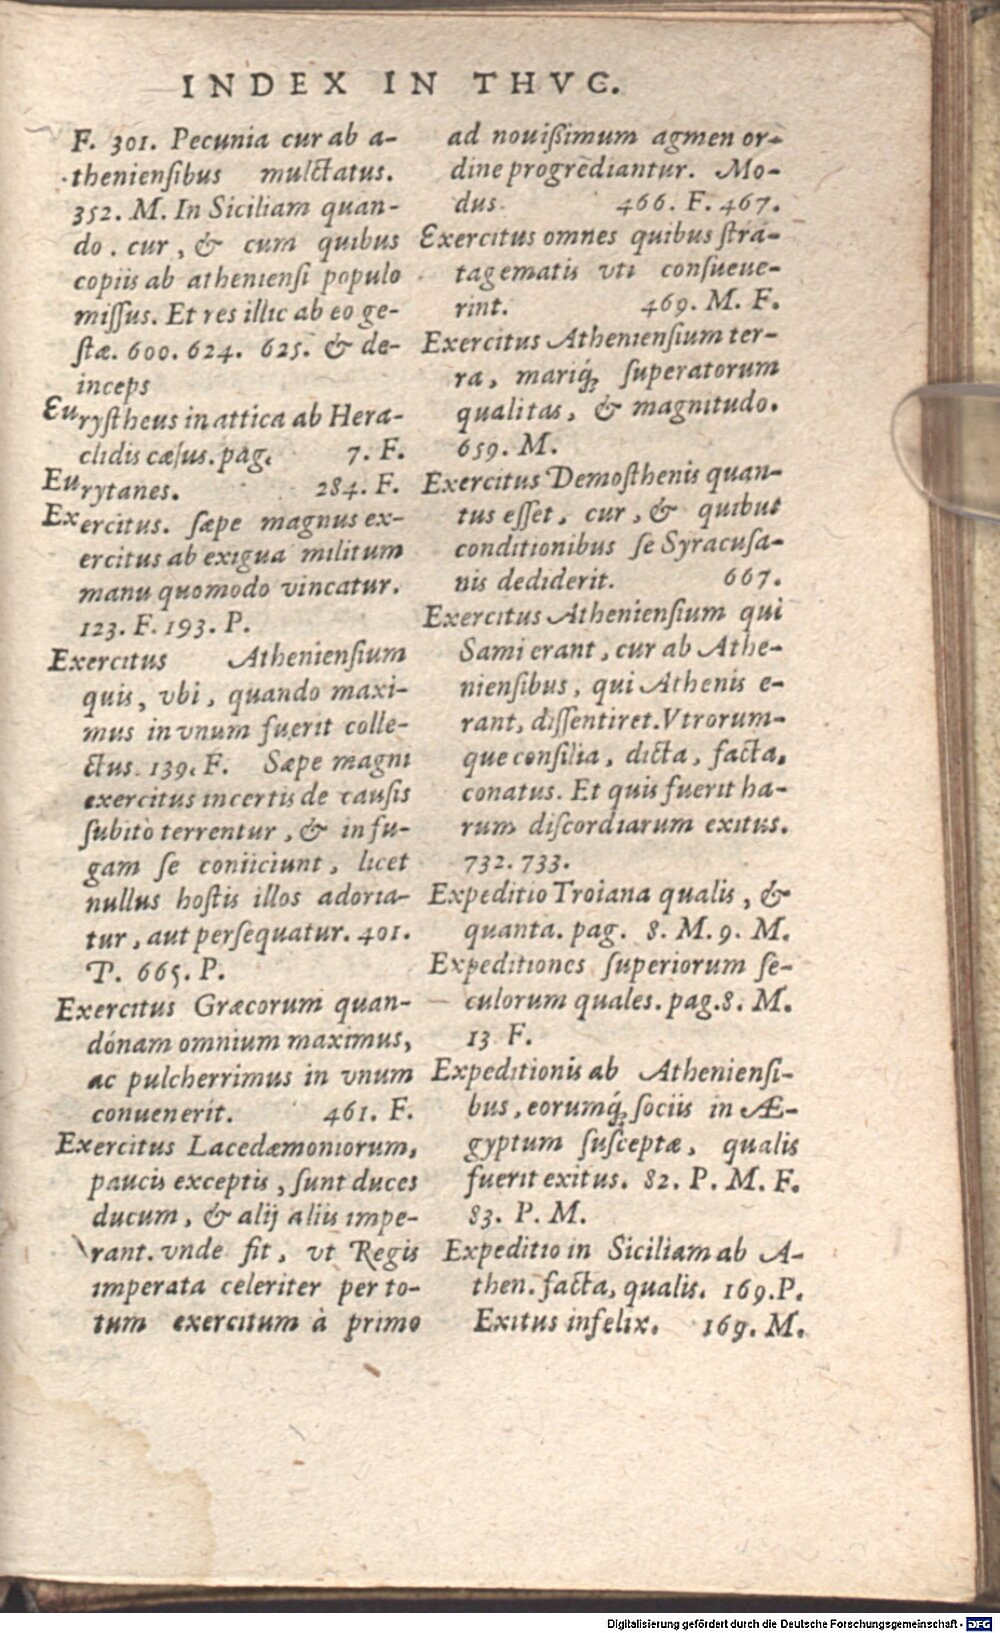 INDEX IN THVC.
F. 301. Pecunia cur ab a-
theniensibus mulctatus.
352. M. In Siciliam quan-
do. cur, & cum quibus
copiis ab atheniensi populo
missus. Et res illic ab eo ge-
stæ. 600. 624. 625. & de-
inceps
Eurystheus in attica ab Hera-
clidis cæsus. pag. 7. F.
Eurytanes. 284. F.
Exercitus. sæpe magnus ex-
ercitus ab exigua militum
manu quomodo vincatur.
123. F. 193. P.
Exercitus Atheniensium
quis, vbi, quando maxi-
mus in vnum fuerit colle-
ctus. 139. F. Sæpe magni
exercitus incertis de causis
subitò terrentur, & in fu-
gam se coniiciunt, licet
nullus hostis illos adoria-
tur, aut persequatur. 401.
P. 665. P.
Exercitus Græcorum quan-
dónam omnium maximus,
ac pulcherrimus in vnum
conuenerit. 461. F.
Exercitus Lacedæmoniorum,
paucis exceptis, sunt duces
ducum, & alij aliis impe-
rant. vnde fit, vt Regis
imperata celeriter per to-
tum exercitum à primo
ad nouißimum agmen or-
dine progrediantur. Mo-
dus. 466. F. 467.
Exercitus omnes quibus stra-
tagematis vti consueue-
rint. 469. M. F.
Exercitus Atheniensium ter-
ra, mariq́; superatorum
qualitas, & magnitudo.
659. M.
Exercitus Demosthenis quan-
tus esset, cur, & quibus
conditionibus se Syracusa-
nis dediderit. 667.
Exercitus Atheniensium qui
Sami erant, cur ab Athe-
niensibus, qui Athenis e-
rant, dissentiret. Vtrorum-
que consilia, dicta, facta,
conatus. Et quis fuerit ha-
rum discordiarum exitus.
732. 733.
Expeditio Troiana qualis, &
quanta. pag. 8. M. 9. M.
Expeditiones superiorum se-
culorum quales. pag. 8. M.
13 F.
Expeditionis ab Atheniensi-
bus, eorumq́; sociis in Æ-
gyptum susceptæ, qualis
fuerit exitus. 82. P. M. F.
83. P. M.
Expeditio in Siciliam ab A-
then. facta, qualis. 169. P.
Exitus infelix. 169. M.
Digitalisierung gefördert durch die Deutsche Forschungsgemeinschaft - DFG